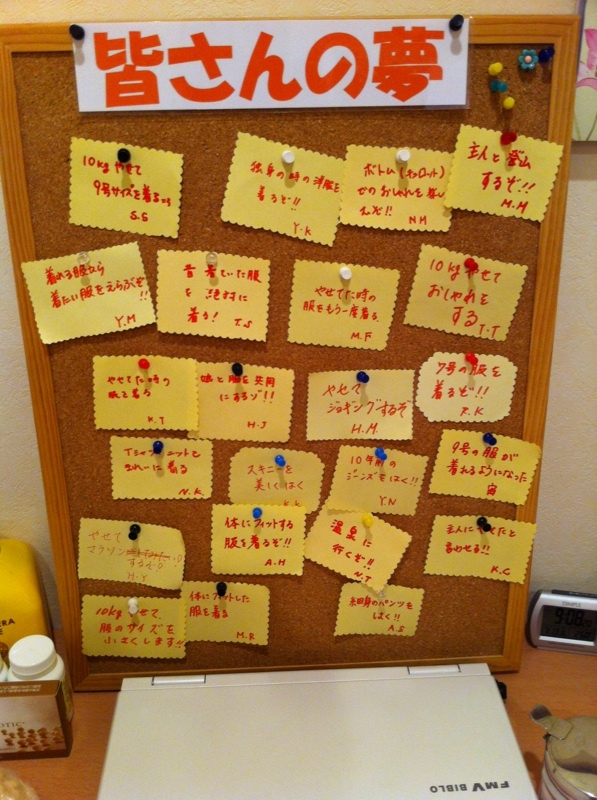 皆さんの夢
10kgやせて
9号サイズを着る
S.S
独身の時の洋服を
着るぞ!!
Y.K
ボトム(キュロット)
せのおしゃれを楽し
むぞ!!
N.M
主人と登山
するぞ!!
M.M
着れる服なら
着たい服をえらぶぞ
!!
Y.M
昔着ていた服
を絶対に
着る!
T.S
やせてた時の
服をもう一度着る
M.F
10kgやせて
おしゃれを
する
T.T
やせてた時の
服を着る
K.T
娘と服を共同
にするゾ!!
H.J
やせて
ジョギングするぞ
H.M
7号の服を
着るぞ!!
K
Tシャツ ニットを
きれーに着る
N.K
スキニーを
美しくはく
10年前の
ジーンズをはく!!
Y.N
9号の服が
着れるようになった
宙
やせて
マラソン
するぞ
H.Y
体にフィットする
服を着るぞ!!
A.H
温泉に
行くぞ!!
N.T
主人にやせたと
言わせる!!
K.C
10kgやせて、
服のサイズを
小さくします!!
体にフィットした
服を着る
M.R
細身のパンツを
はく!!
A.S
FMV BIBLO